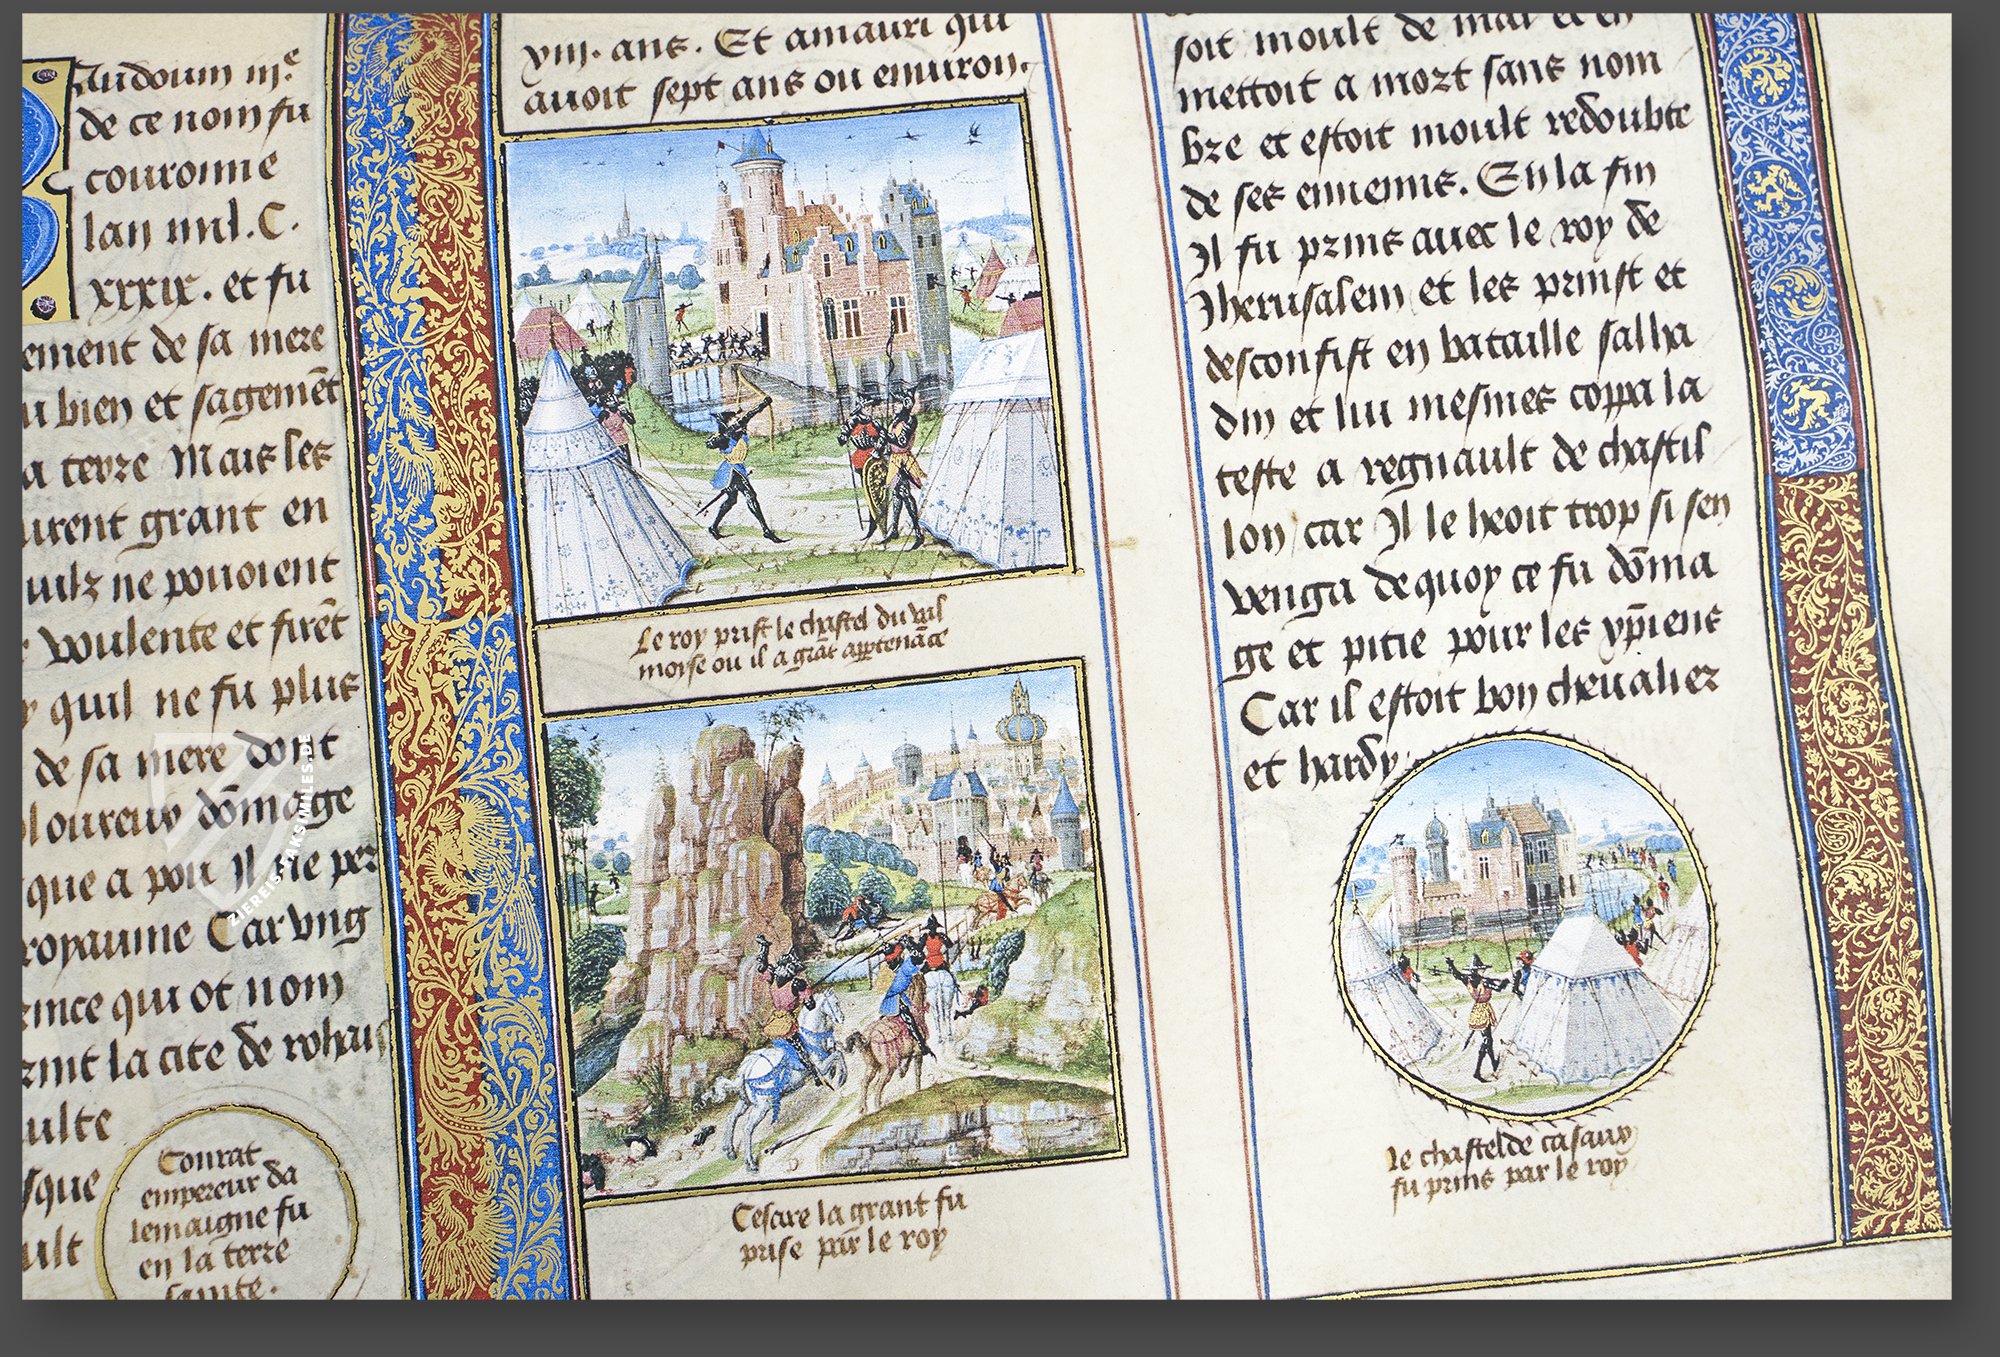 Baudouin iiiᵉ
de ce nom fu
couronne
lan mil.C.
xxxix. et fu
ement de sa mere
u bien et sagemẽt
a terre Mais les
urent grant en
uilz ne pouoient
voulente et firẽt
y quil ne fu plus
de sa mere dont
loureux dõmage
que a pou Il ne per
royaume Car vng
rince qui ot nom
rint la cite de rohais
aulte
sque
ult
Conrat
empereur da
lemaigne fu
en la terre
sainte.
viii. ans. Et amauri qui
auoit sept ans ou enuiron.
Le roy prist le chastel du val
moise ou il a grãt apptenãce
Cesare la grant fu
prise par le roy
soit moult de mal et en
mettoit a mort sans nom
bre et estoit moult redoubte
de ses ennemis. En la fin
Il fu prins auec le roy de
Iherusalem et les prinst et
desconfist en bataille salha
din et lui mesmes coppa la
teste a regnault de chastil
lon car Il le heoit trop si sen
venga de quoy ce fu dõma
ge et pitie pour les xp̃iens
Car il estoit bon cheualier
et hardy.
le chastel de casaux
fu prins par le roy
ZIEREIS FAKSIMILES.DE